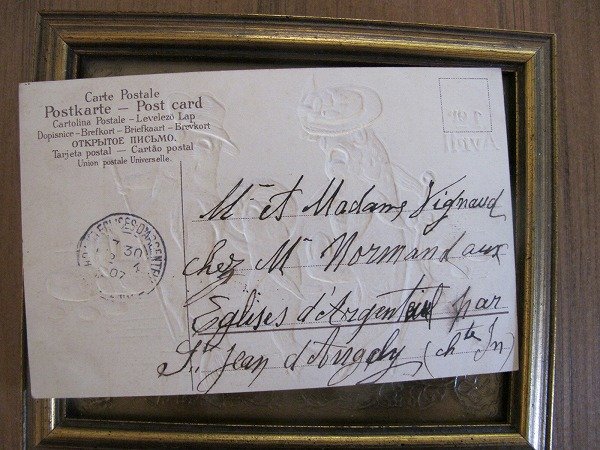 Carte Postale
Postkarte — Post card
Cartolina Postale – Levelezö Lap
Dopisnice – Brefkort – Briefkaart – Brevkort
ОТКРЫТОЕ ПИСЬМО.
Tarjeta postal — Cartão postal
Union postale Universelle.
Mr et Madame Vignaud
chez Mr Normand aux
Eglises d'Argenteuil par
St Jean d'Angely (chte In)
EGLISES-D'ARGENTEUIL
30
07
1er
Avril